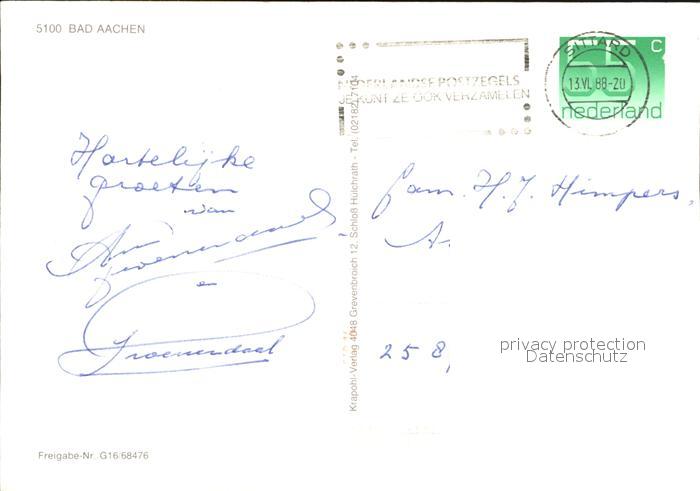 5100 BAD AACHEN
NEDERLANDSE POSTZEGELS
JE KUNT ZE OOK VERZAMELEN
SITTARD
13.VI.88-20
55 c
nederland
Hartelijke
groeten
van
Groenendaal
en
Groenendaal
Krapohl-Verlag 4048 Grevenbroich 12, Schloß Hülchrath - Tel. (02182) 7104
fam. H.J. Himpers,
A.
258,
privacy protection
Datenschutz
Freigabe-Nr. G16/68476